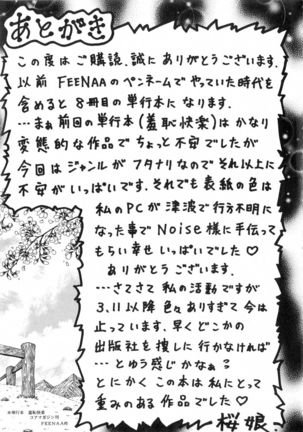 あとがき
この度は ご購読、誠に ありがとうございます。
以前 FEENAAのペンネームでやっていた時代を
含めると 8冊目の単行本に なります。
…まぁ前回の単行本(羞恥快楽)は かなり
変態的な作品で ちょっと不安でしたが
今回は ジャンルが フタナリなので それ以上に
不安が いっぱいです。それでも表紙の色は
私のPCが 津波で行方不明に
なった事で Noise様に手伝って
もらい 幸せ いっぱいでした♡
ありがとう ございます。
…さてさて 私の活動ですが
3.11以降 色々ありすぎて 今は
止っています。早く どこかの
出版社を 捜しに行かなければ…
…とゆう感じ かなぁ?
とにかく この本は 私にとって
重みのある 作品でした♡
桜娘
※単行本 羞恥快楽
コアマガジン刊
FEENAA時